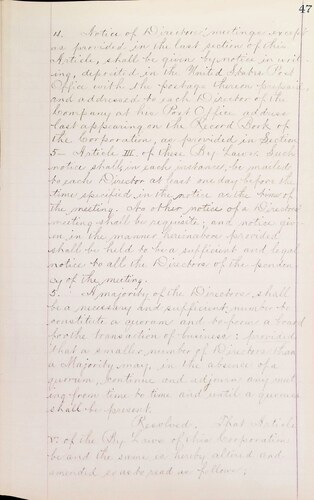 47
4. Notice of Directors' meetings except
as provided in the last section of this
Article, shall be given by notice in writ-
ing, deposited in the United States Post
Office with the postage thereon prepaid
and addressed to each Director of the
Company at his Post Office address
last appearing on the Record Book of
the Corporation, as provided in Section
5 - Article III, of these By Laws. Such
notice shall, in each instance, be mailed
to each Director at least one day before the
time specified in the notice as the time of
the meeting. No other notice of a Directors'
meeting shall be requisite, and notice giv-
en in the manner hereinbefore provided
shall be held to be a sufficient and legal
notice to all the Directors of the penden-
cy of the meeting.
5. A majority of the Directors, shall
be a necessary and sufficient number to
constitute a quorum and to form a board
for the transaction of business; provided
that a smaller number of Directors than
a Majority may, in the absence of a
quorum, convene and adjourn any meet-
ing from time to time and until a quorum
shall be present.
Resolved. That Article
V. of the By Laws of this Corporation
be and the same is hereby altered and
amended so as to read as follows;